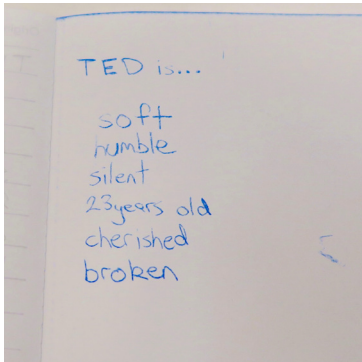 TED is...
soft
humble
silent
23 years old
cherished
broken